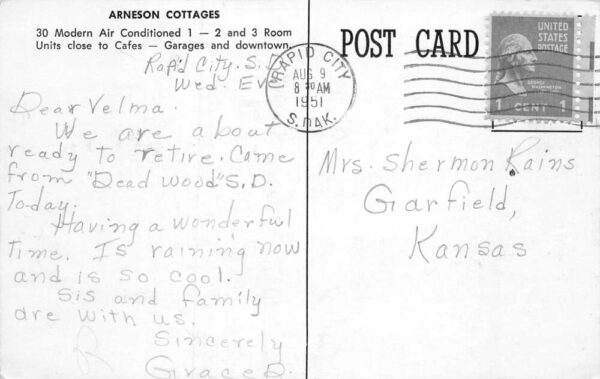 ARNESON COTTAGES
30 Modern Air Conditioned 1 — 2 and 3 Room
Units close to Cafes — Garages and downtown.
Rapid City. S.D.
Wed. Ev
Dear Velma.
We are about
ready to retire. Came
from "Dead Wood" S.D.
Today.
Having a wonderful
Time. Is raining now
and is so cool.
Sis and family
are with us.
Sincerely
Grace D.
RAPID CITY
AUG 9
8 30 AM
1951
S. DAK.
POST CARD
UNITED
STATES
POSTAGE
GEORGE
WASHINGTON
1 CENT 1
Mrs. Shermon Rains
Garfield,
Kansas